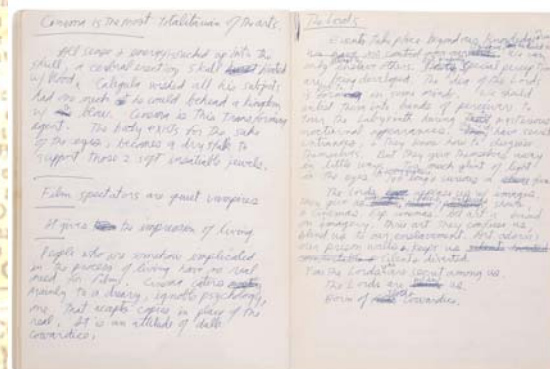 Cinema is the most totalitarian of the arts.
All sense & energy sucked up into the
skull, a cerebral erection, skull bloated
w/ blood. Caligula wished all his subjects
had one neck he could behead a kingdom
w/ blow. Cinema is this transforming
agent. The body exists for the sake
of the eyes, becomes a dry stalk to
support those 2 soft insatiable jewels.
Film spectators are quiet vampires
It gives the impression of living
People who are somehow implicated
in the process of living have no real
need for films. Cinema caters
mainly to a dreary, ignoble psychology,
one that accepts copies in place of the
real. It is an attitude of
cowardice.
The Lords
Events take place beyond our knowledge
or control
only others.
are being developed. The idea of the Lords
is in some minds. We should
enlist them into bands of perceivers to
tour the labyrinth during mysterious
nocturnal appearances. They have secret
entrances, & they know how to disguise
themselves. But they give themselves away
in little ways. Too much glint of light
in the eyes.
The Lords appease us w/ images.
They give us
& cinemas. Esp cinemas.
on imagery. art they confuse us
blind us to our enslavement. Art adorns
our prison walls & keeps us
silent & diverted.
For the Lords are secret among us.
The Lords are us.
Born of sloth cowardice.